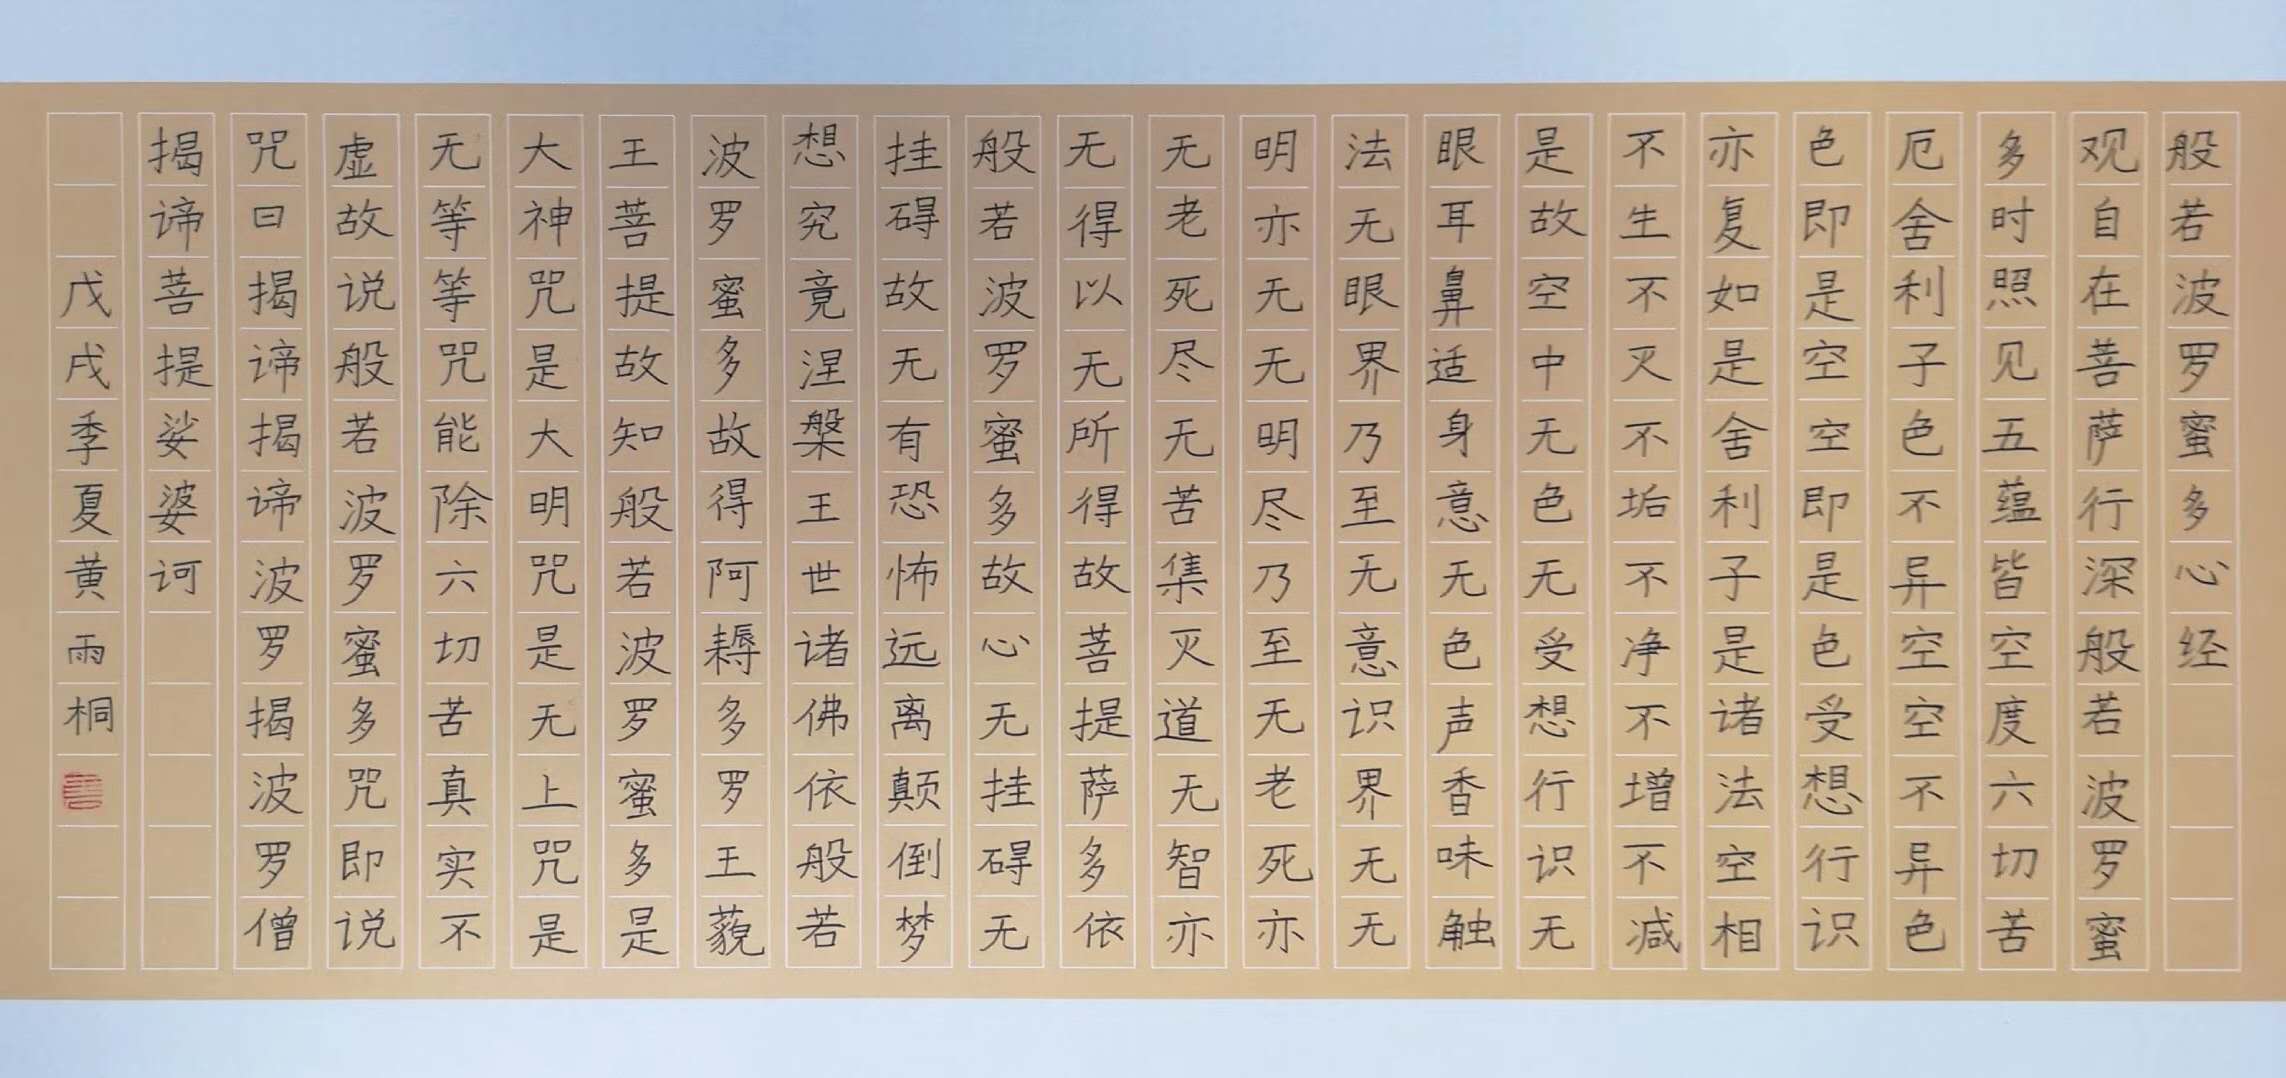 般若波罗蜜多心经
观自在菩萨行深般若波罗蜜
多时照见五蕴皆空度六切苦
厄舍利子色不异空空不异色
色即是空空即是色受想行识
亦复如是舍利子是诸法空相
不生不灭不垢不净不增不减
是故空中无色无受想行识无
眼耳鼻适身意无色声香味触
法无眼界乃至无意识界无无
明亦无无明尽乃至无老死亦
无老死尽无苦集灭道无智亦
无得以无所得故菩提萨多依
般若波罗蜜多故心无挂碍无
挂碍故无有恐怖远离颠倒梦
想究竟涅槃王世诸佛依般若
波罗蜜多故得阿耨多罗王藐
王菩提故知般若波罗蜜多是
大神咒是大明咒是无上咒是
无等等咒能除六切苦真实不
虚故说般若波罗蜜多咒即说
咒曰揭谛揭谛波罗揭波罗僧
揭谛菩提娑婆诃
戊戌季夏黄雨桐